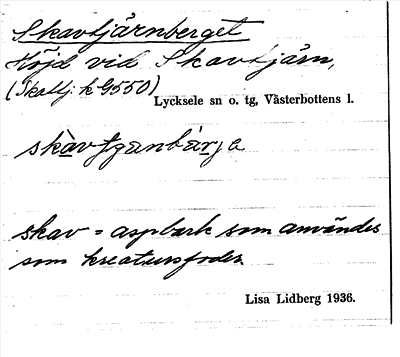 Skavtjärnberget
Höjd vid Skavtjärn,
(Skattj. k 9550)
Lycksele sn o. tg, Västerbottens l.
skav = aspbark som användes
som kreatursfoder.
Lisa Lidberg 1936.